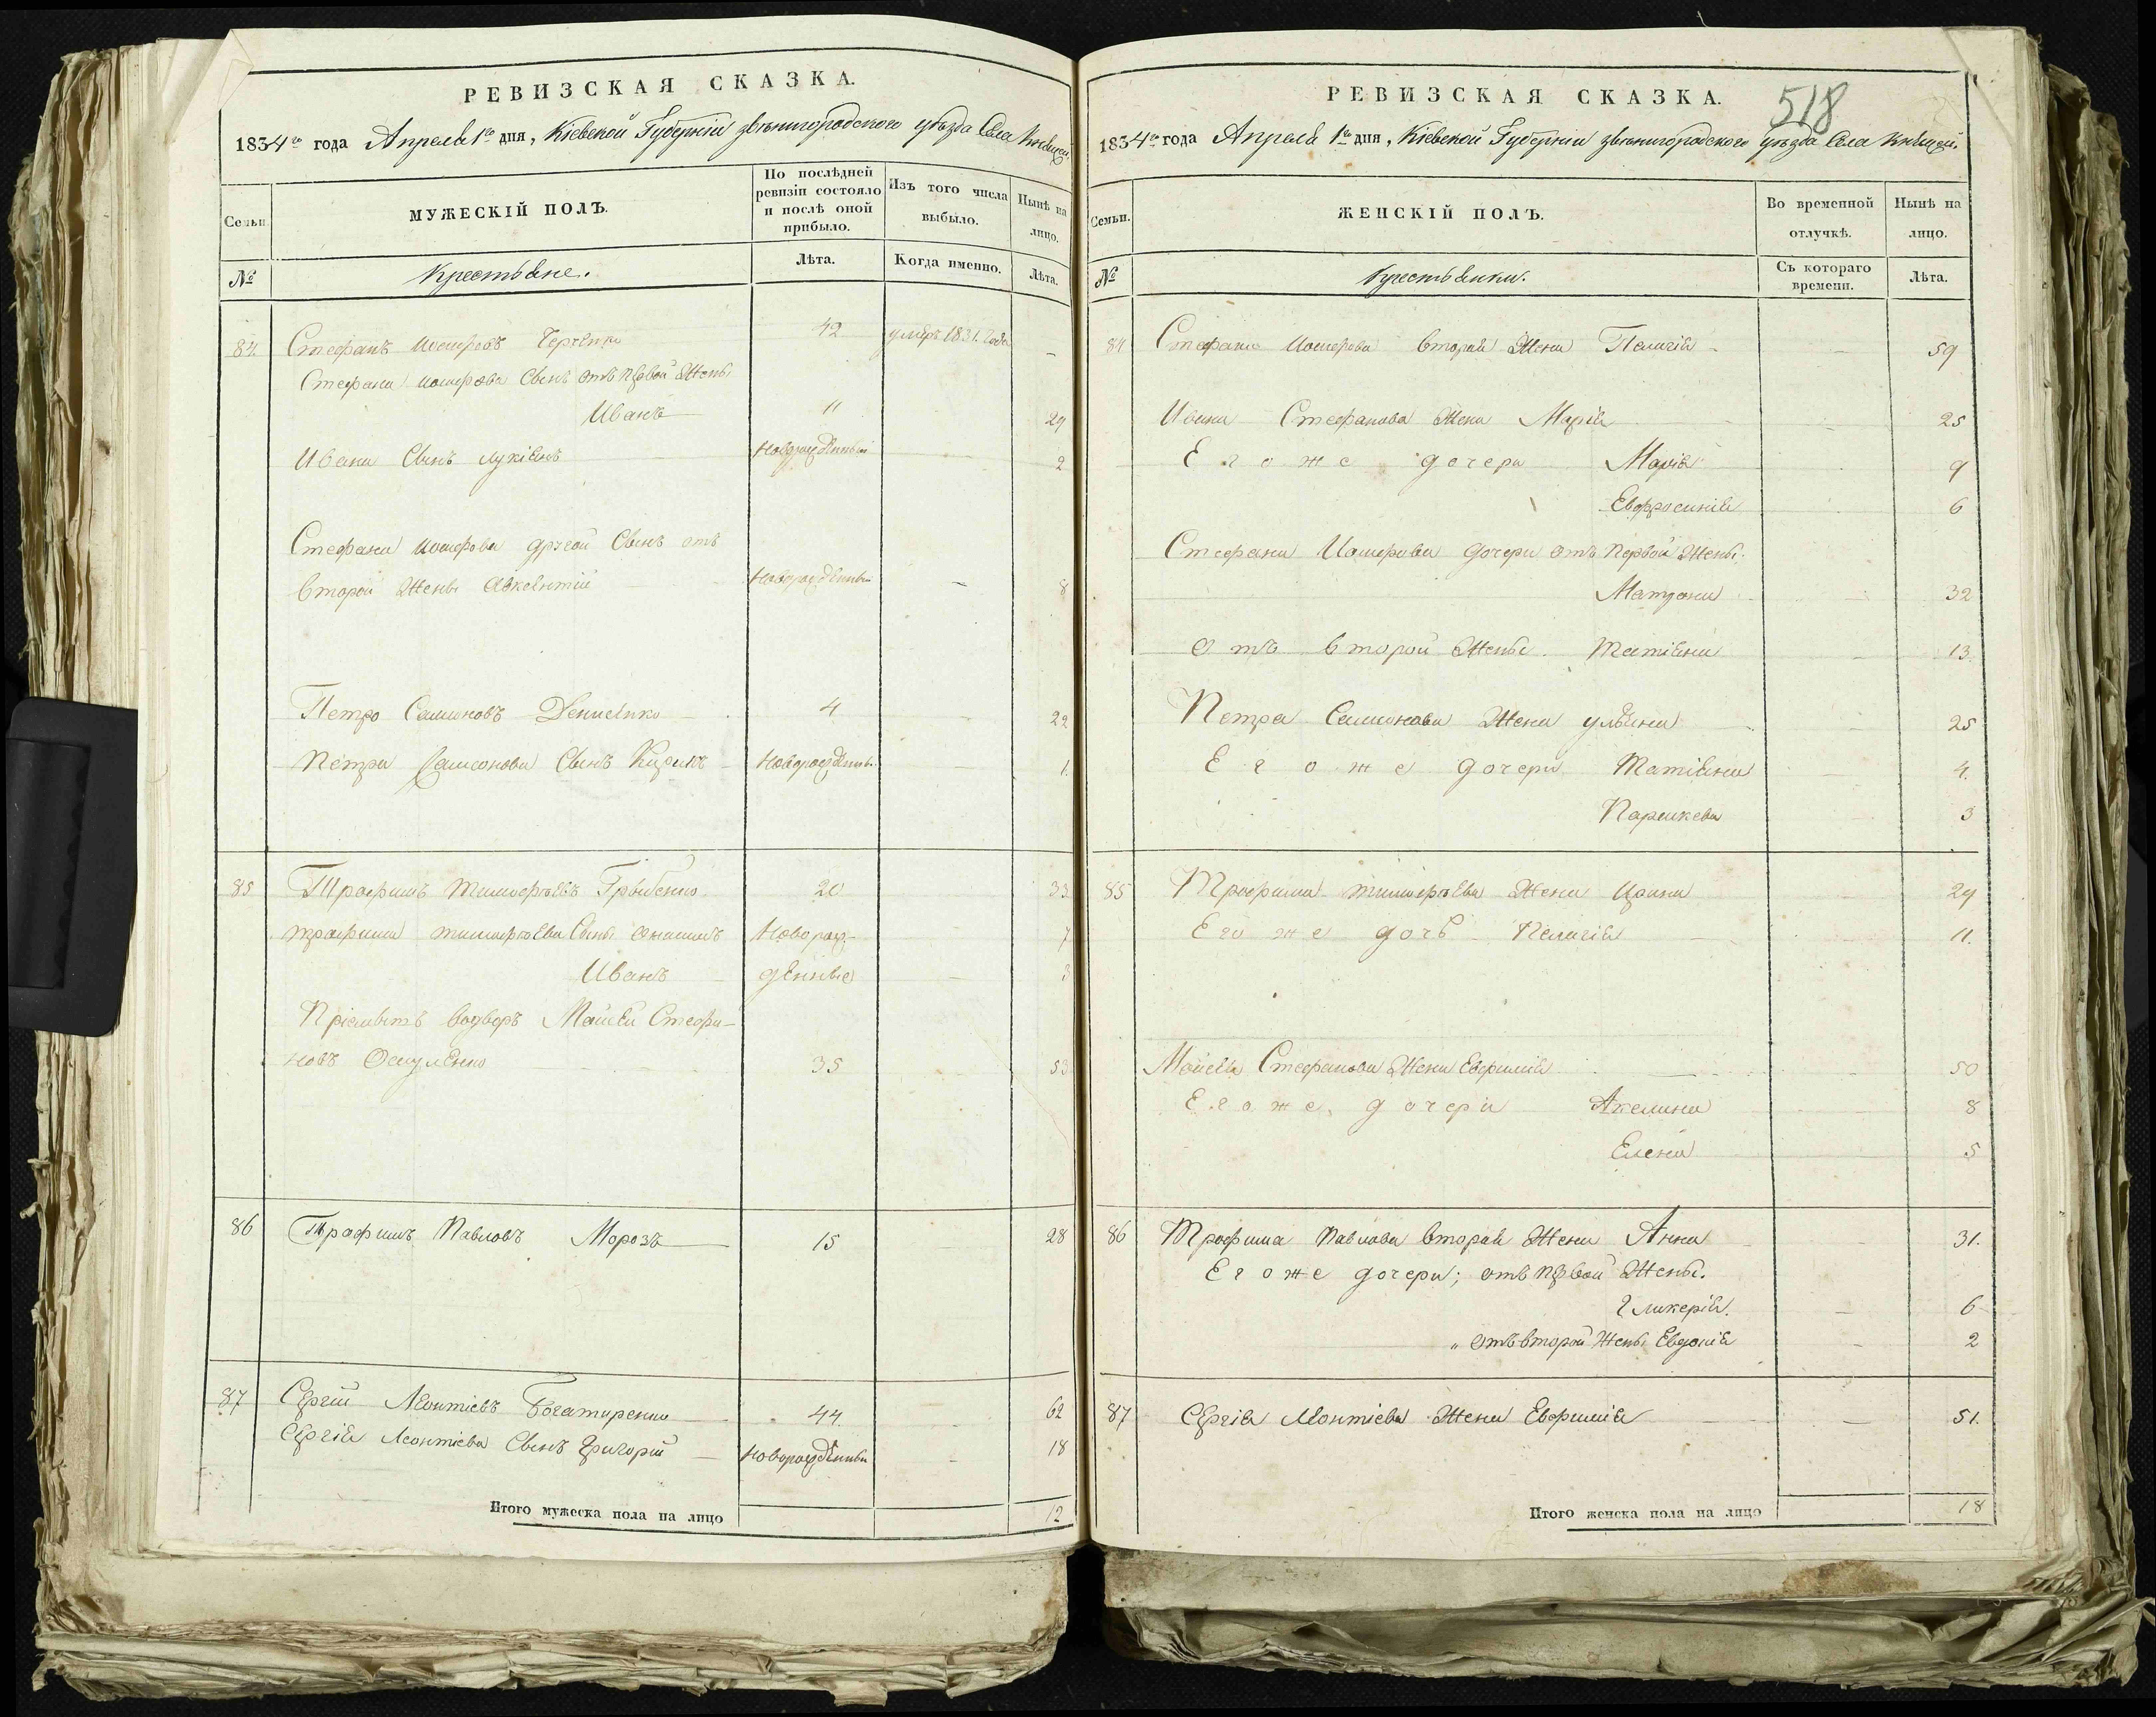 РЕВИЗСКАЯ СКАЗКА.
1834го года Апреля 1го дня, Кіевской Губерніи звѣнигородского уѣзда Села
Семьи.
МУЖЕСКІЙ ПОЛЪ.
По послѣдней ревизіи состояло и послѣ оной прибыло.
Изъ того числа выбыло.
Нынѣ на лицо.
№
Крестьяне.
Лѣта.
Когда именно.
Лѣта.
84 Стефанъ Іосифовъ 42 умеръ 1831. года —
Стефана Іосифова Сынъ отъ первой Жены
Иванъ 11 29
Ивана Сынъ Лукіянъ новорожденный 2
Стефана Іосифова другой Сынъ отъ
второй Жены Авксентій новорожденный — 8
Петро Самсоновъ Денисенко 4 22
Петра Самсонова Сынъ Кирилъ новорожденный 1.
85 Трофимъ тимофѣевъ Грыценко 20 33
трофима тимофѣева Сыны Онисимъ Новорож- 7
Иванъ денные 3
Пріемышъ Моисей Стефа-
новъ 35 53
86 Трофимъ Павловъ Морозъ 15 28
87 Сергій Леонтіевъ Богатиренко 44 62
Сергія Леонтіева Сынъ Григорій новорожденный 18
Итого мужеска пола на лицо 12
518
РЕВИЗСКАЯ СКАЗКА.
1834го года Апреля 1го дня, Кіевской Губерніи звѣнигородского уѣзда Села
Семьи.
ЖЕНСКІЙ ПОЛЪ.
Во временной отлучкѣ.
Нынѣ на лицо.
№
Крестьянки.
Съ котораго времени.
Лѣта.
84 Стефана Іосифова вторая Жена Пелагія — 59
Ивана Стефанова Жена Марія 25
Его же дочери Марія 9
Евфросинія 6
Стефана Іосифова дочери отъ первой Жены.
Матрона 32
Отъ второй Жены. Татіяна 13
Петра Самсонова Жена ульяна 25
Его же дочери Татіяна 4.
Параскева 3
85 Трофима тимофѣева Жена Ирина 29
Его же дочь Пелагія 11.
Моисея Стефанова Жена Евфимія 50
Его же, дочери Акелина 8
Елена 5
86 Трофима Павлова вторая Жена Анна 31.
Его же дочери; отъ первой Жены.
Гликерія. 6
„ отъ второй Жены Евдокія 2
87 Сергія Леонтіева Жена Евфимія 51.
Итого женска пола на лицо 18